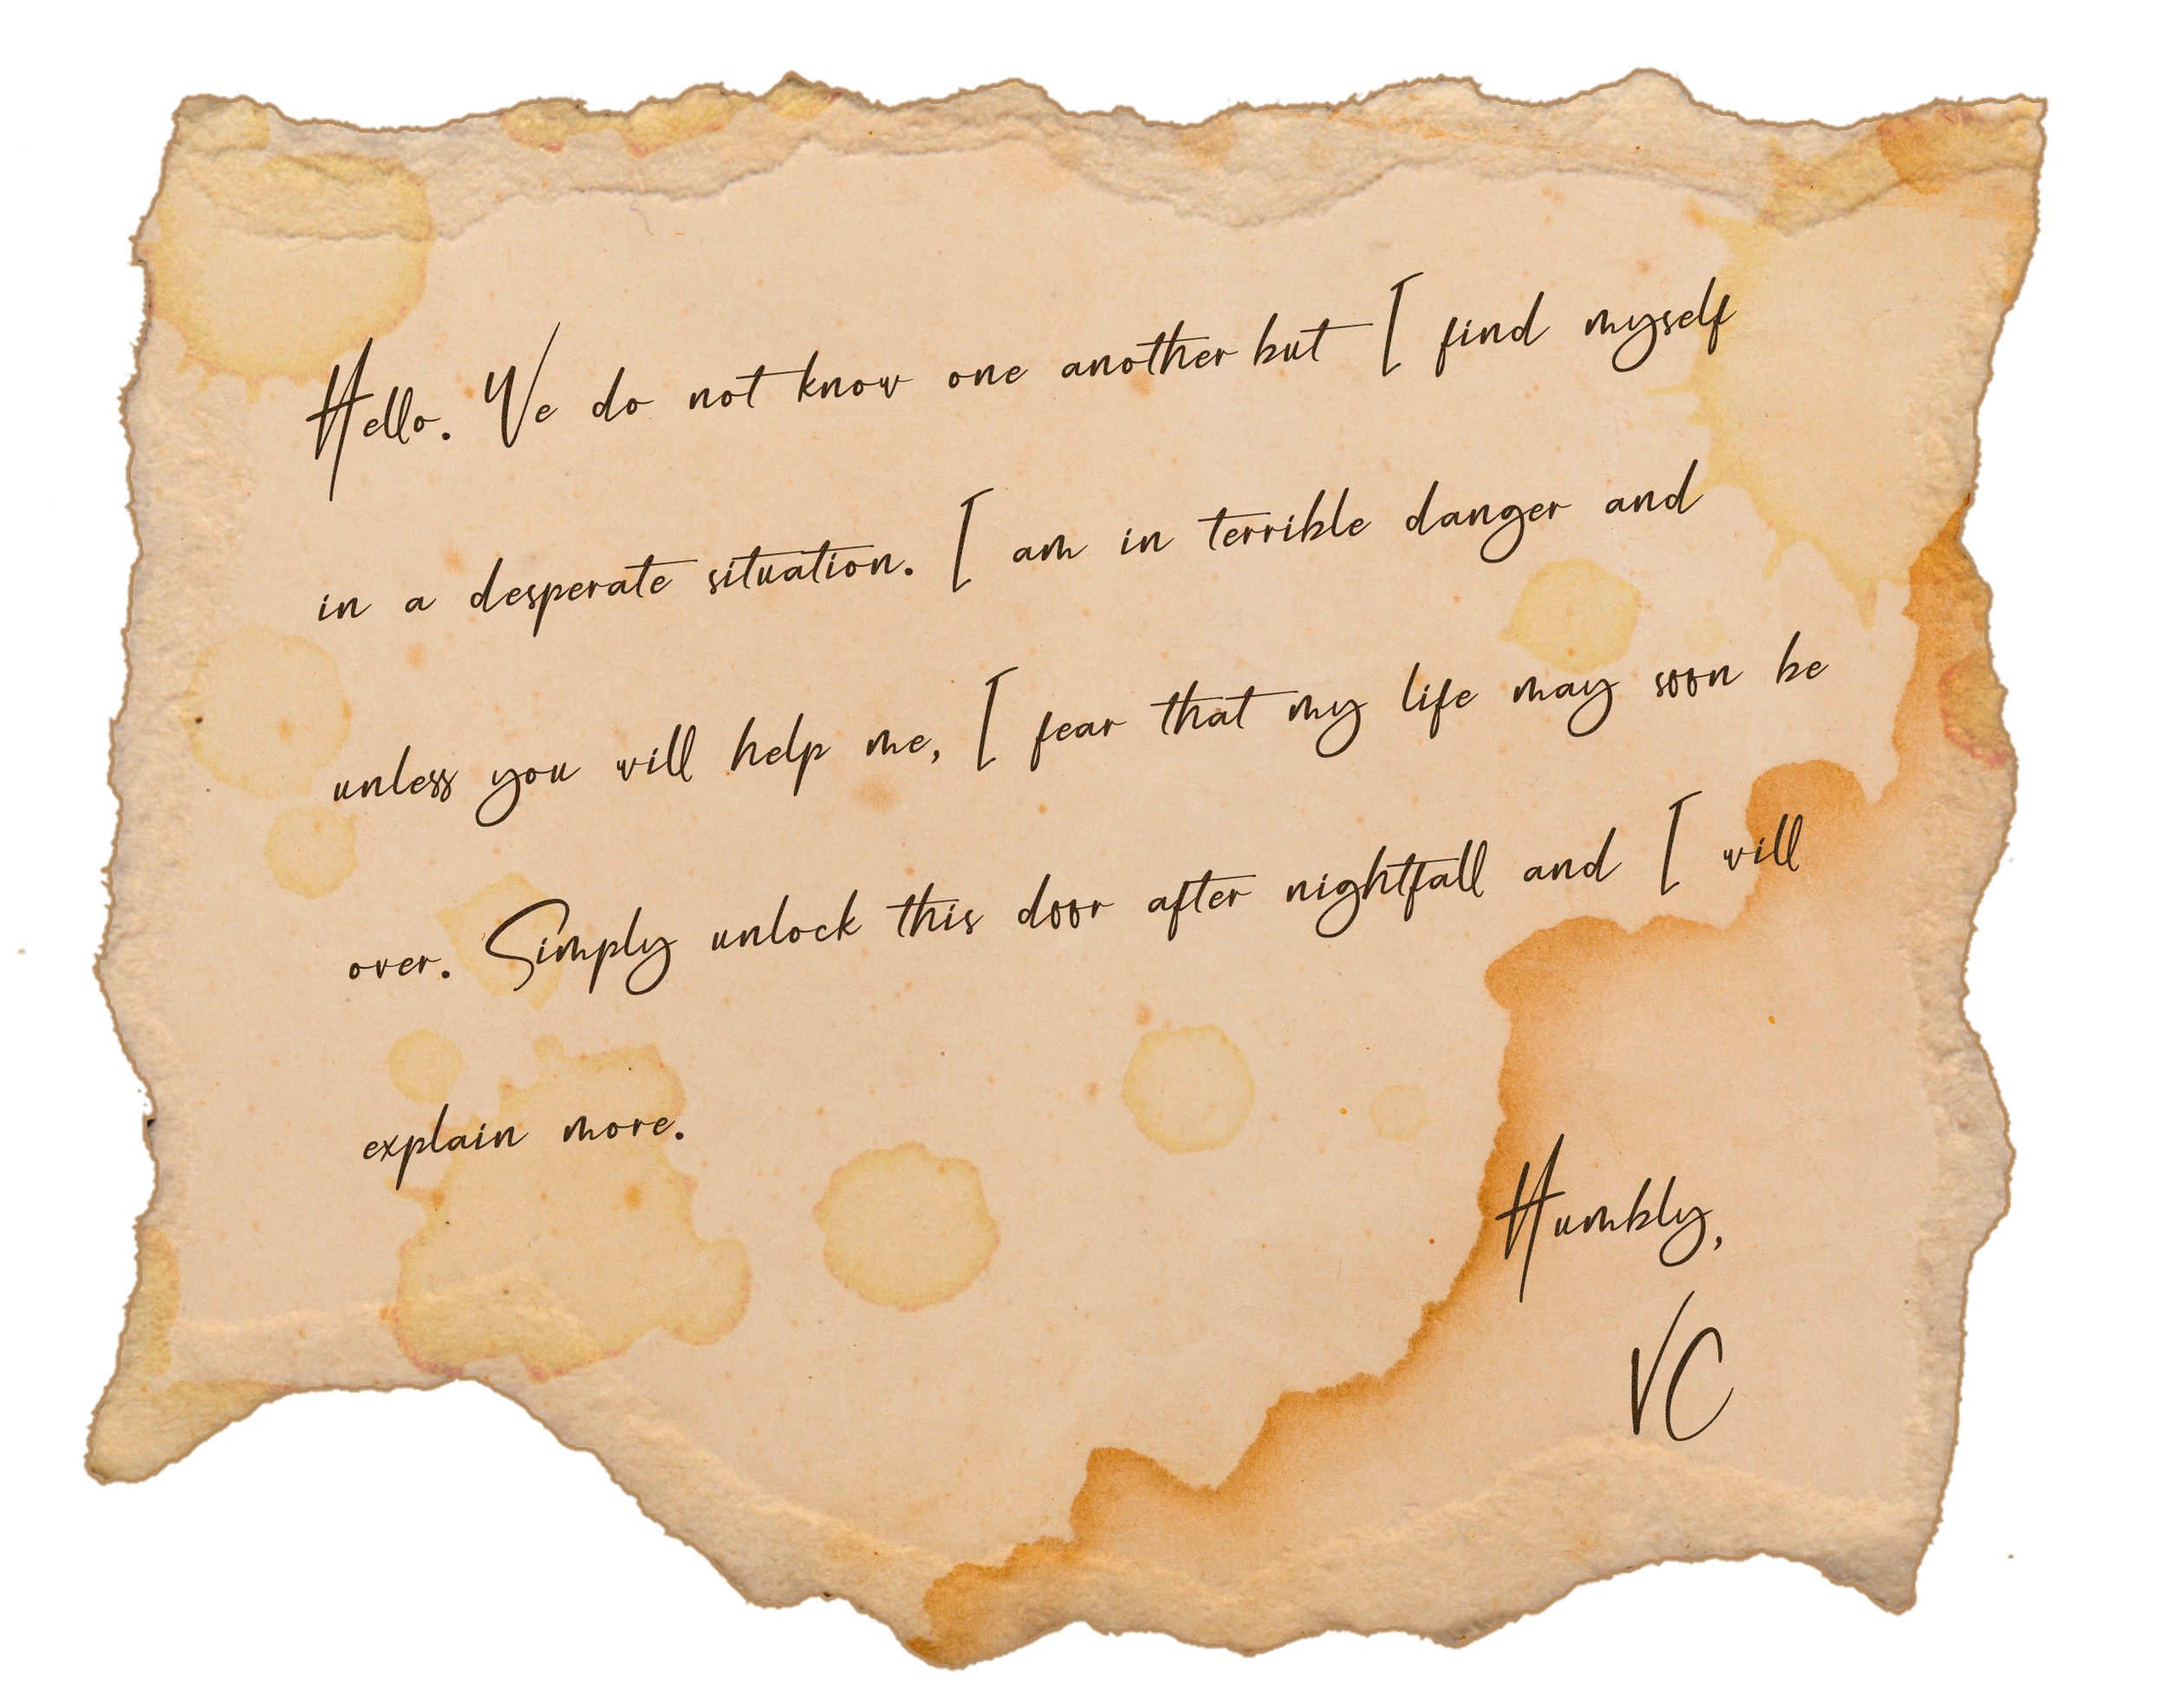 Hello. We do not know one another but I find myself
in a desperate situation. I am in terrible danger and
unless you will help me, I fear that my life may soon be
over. Simply unlock this door after nightfall and I will
explain more.
Humbly,
VC